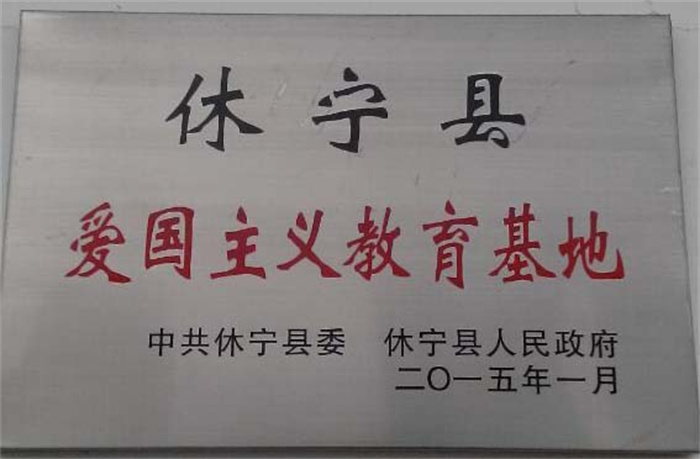 休宁县
爱国主义教育基地
中共休宁县委 休宁县人民政府
二〇一五年一月